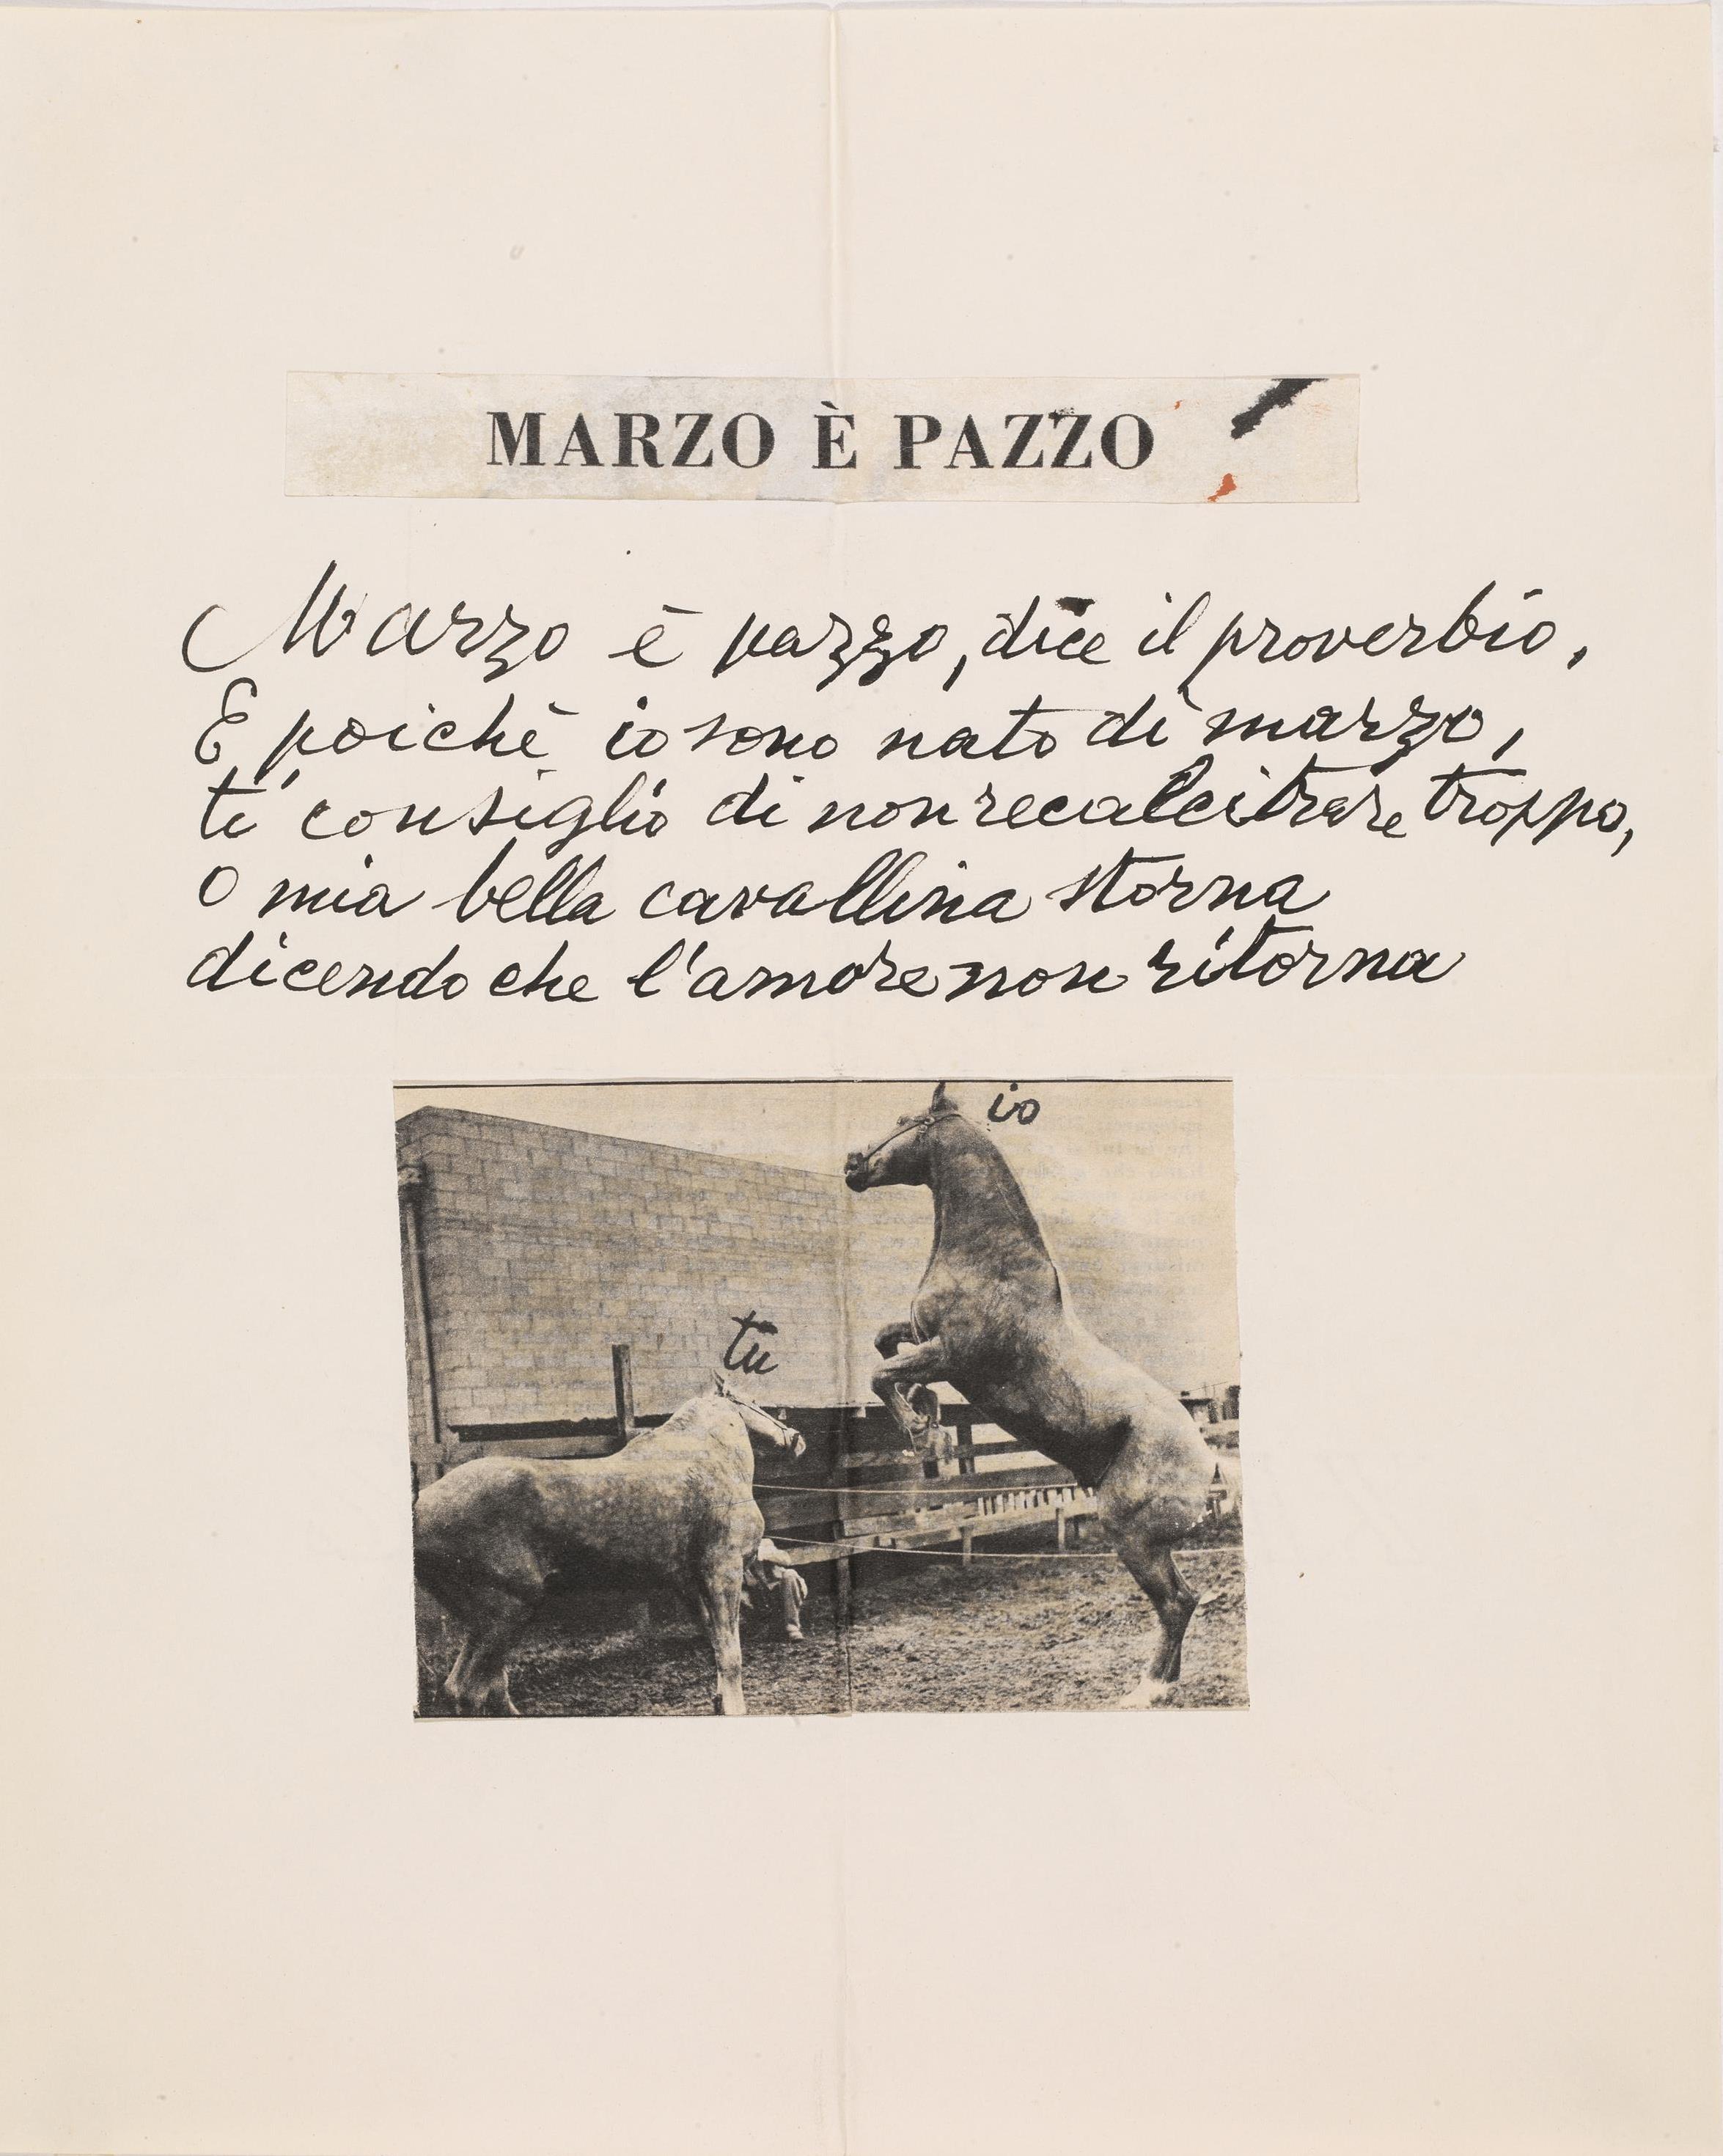 MARZO È PAZZO
Marzo è pazzo, dice il proverbio,
E poichè io sono nato di marzo,
ti consiglio di non recalcitrare troppo,
O mia bella cavallina storna
dicendo che l'amore non ritorna
io
tu